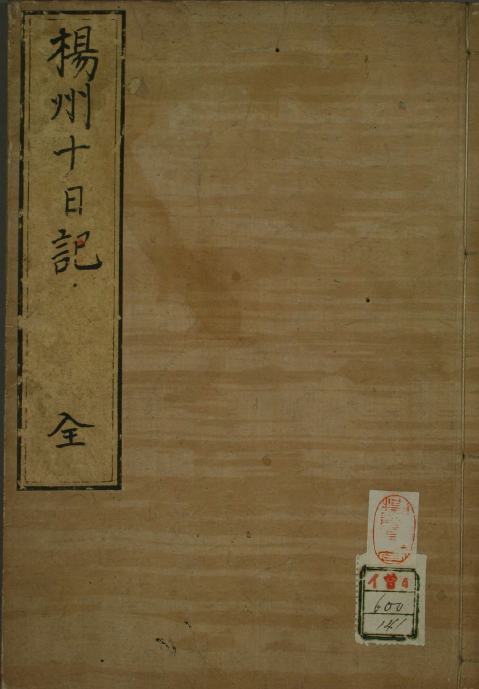 楊州十日記 全
イ曽4
600
141